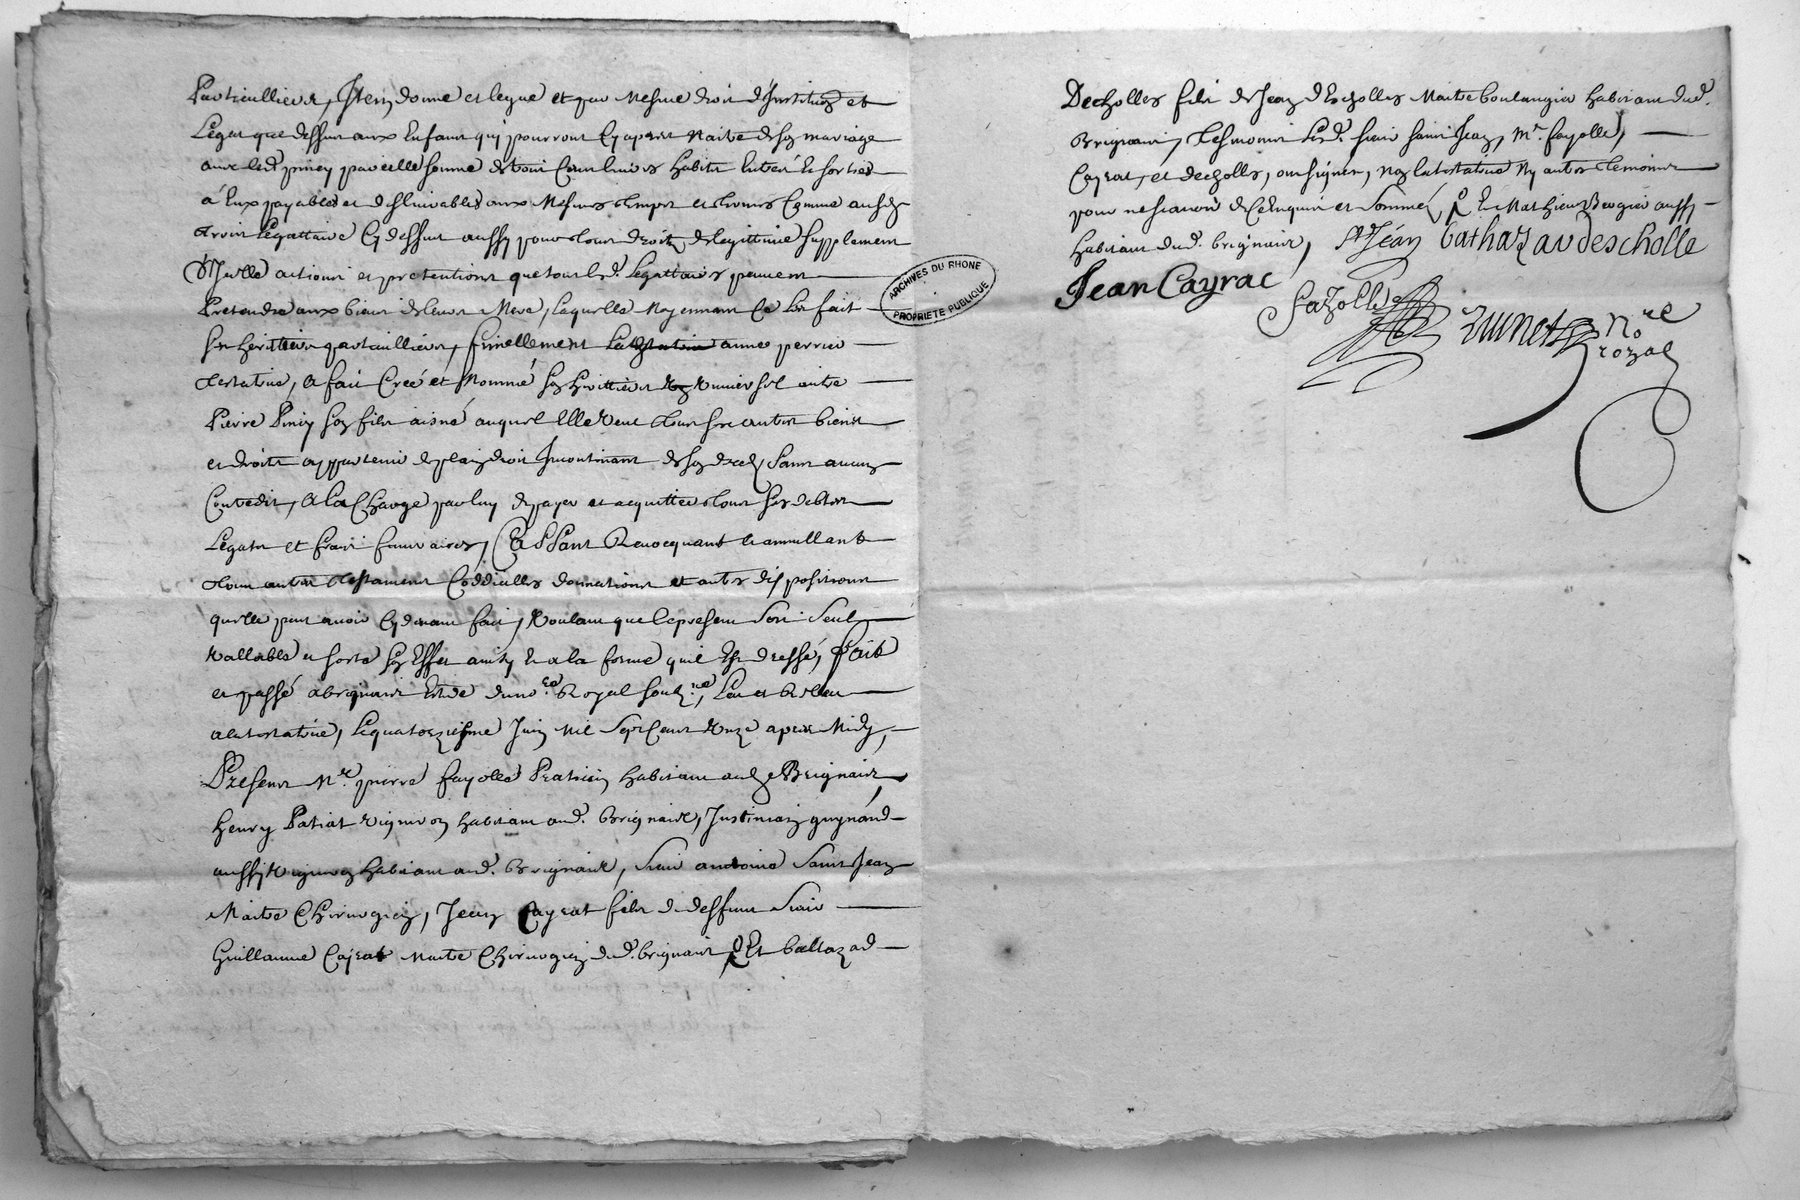 Particulliers, Item donne et legue et par mesme droit d'Institution et
Legat que dessus aux Enfans qui pourront Cy apres naitre de son mariage
avec led. piney pareille somme de trois Cens livres habits
à Eux payables et deslivrables aux mesmes temps et termes Comme
Legattaire Cy dessus aussy pour tous droits de legittime supplement
d'Icelle actions et pretentions que tous lesd. Legattaires peuvent
Pretendre aux biens de leur mere, laquelle moyennant Ce les fait
ses heritiers particulliers, finellement la testatrice annee perrier
testatrice, a fait Creé et Nommé son herittier universel
Pierre Piney son fils aisné auquel Elle veut tous ses autres biens
et droits appartenir de plain droit Incontinant de son deces sans aucun
Contredit, a la Charge par luy de payer et acquitter tous ses debtes
Legats et frais funeraires, Cassant Revocquant et annullant
tous autres testamens Coddicilles donnations et autres dispositions
quelle peut avoir Cy devant fait, voulant que le present soit seul
vallable et sorte son Effet ainsy et a la forme quil Est dressé, fait
et passé a brignaix Estude du no.re Royal soub.né, Leu et Releu
a la testatrice, le quatorziesme Juin mil sept Cent Unze apres midy,
Presens M.re pierre fayolle Praticien habitant aud. Brignaix
henry Patiat vigneron habitant aud. brignaix, Justinien guynand
aussy vigneron habitant aud. brignaix, sieur antoine saint Jean
Maitre Chirurgien, Jean Cayrat fils de deffunt sieur
Guillaume Cayrat maitre Chirurgien dud. brignaix Et baltazad
Decholles fils de Jean d'Escholles Maitre boulangier habitant dud.
Brignaix, tesmoins lesd. sieur saint Jean, M.re fayolle,
Cayrat, et decholles, ont signez, non la testatrice ny autres temoins
pour ne scavoir de Ce Enquis et sommé, Et Mathieu Bergier aussy
habitant dud. brignaix,
St Jéan bathazar descholle
Jean Cayrac
fayolle
brunet no.re
royal
ARCHIVES DU RHONE
PROPRIETE PUBLIQUE